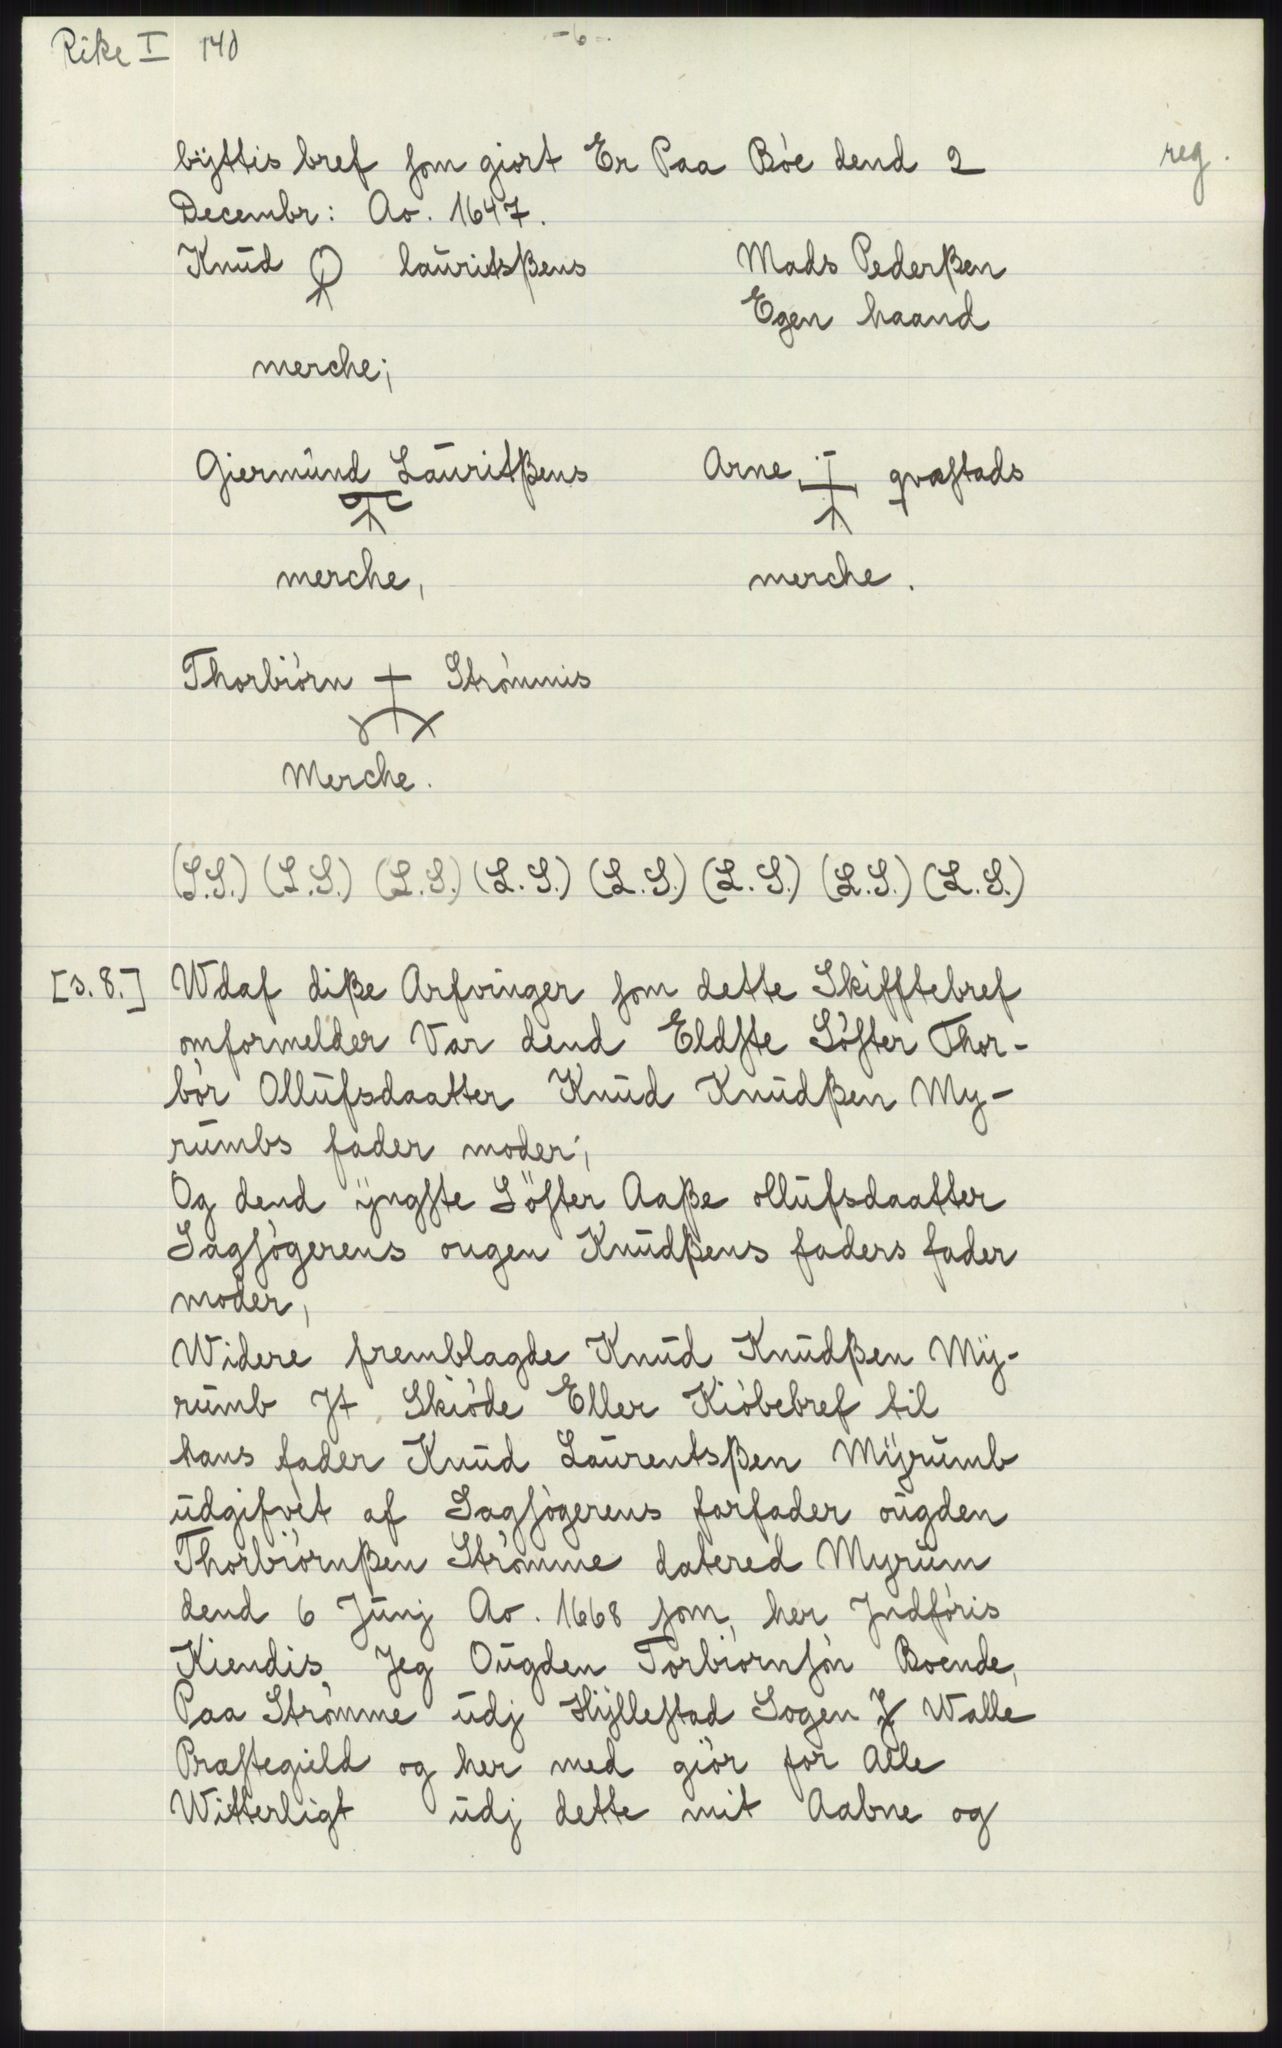 Rike I 140
-6-
reg.
bÿttis bref som giort Er Paa Bóe dend 2
Decembr: Ao. 1647.
Knud lauritsßens
Mads Pederßen
Egen haand
merche;
Giermúnd Lauritßens
Arne qvæstads
merche,
merche.
Thorbiórn Strómmis
Merche.
(L.S.) (L.S.) (L.S.) (L.S.) (L.S.) (L.S.) (L.S.) (L.S.)
[s. 8.] Wdaf diße Arfvinger som dette Skifftebref
omformelder Var dend Eldste Sóster Thor-
bór Ollufsdaatter Knud Knudßen My-
rumbs fader moder;
Og dend ÿngste Söster Aaße ollufsdaatter
Sagsógerens ougen Knudßens faders fader
moder,
Widere fremblagde Knud Knudßen Mÿ-
rumb Jt Skióde Eller Kióbebref til
hans fader Knud Laurentsßen Mÿrumb
udgifvet af Sagsógerens farfader ougden
Thorbiórnßen Strómme datered Myrum
dend 6 Junj Ao. 1668 som her Jndfóris
Kiendis Jeg Ougden Torbiórnsón Boende,
Paa Strómme udj Hÿllestad Sogen J Walle
Præstegield og her med giór for Alle
Witterligt udj dette mit Aabne og